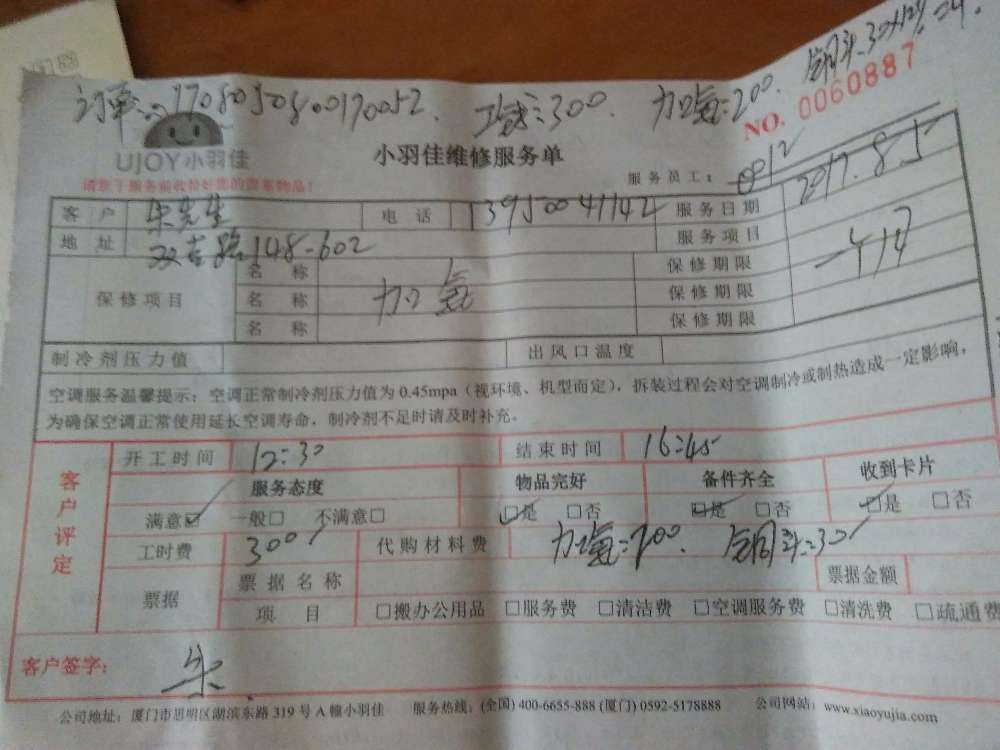 1708050800170052. 工费:300 加氟:200.
NO. 0060887
UJOY小羽佳
小羽佳维修服务单
服务员工:
请您于服务前收拾好您的贵重物品!
客户 朱先生 电话 13950041142 服务日期 2017.8.5
地址 双吉路148-602 服务项目
保修项目 名称 加氟 保修期限 一年内
名称 保修期限
名称 保修期限
制冷剂压力值 出风口温度
空调服务温馨提示:空调正常制冷剂压力值为0.45mpa(视环境、机型而定),拆装过程会对空调制冷或制热造成一定影响,
为确保空调正常使用延长空调寿命,制冷剂不足时请及时补充。
客户评定
开工时间 12:30 结束时间 16:45
服务态度 物品完好 备件齐全 收到卡片
满意☑ 一般□ 不满意□ ☑是 □否 ☑是 □否 ☑是 □否
工时费 300 代购材料费 加氟:200. 铜斗:30
票据 票据名称 票据金额
项目 □搬办公用品 □服务费 □清洁费 □空调服务费 □清洗费 □疏通费
客户签字: 朱
公司地址:厦门市思明区湖滨东路319号A幢小羽佳 服务热线:(全国) 400-6655-888 (厦门) 0592-5178888 公司网站:www.xiaoyujia.com